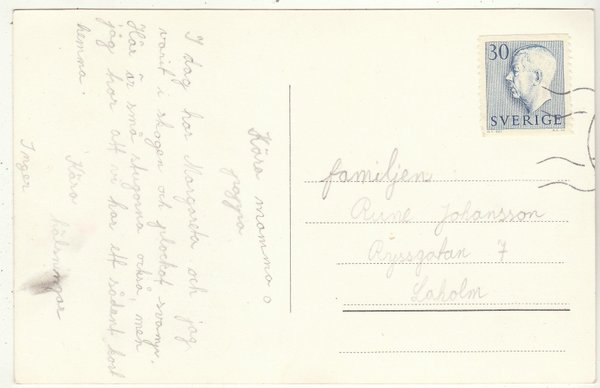 Kära mamma o
pappa
I dag har Margareta och jag
varit i skogen och plockat svamp.
Här är små stugorna också, men
jag tror att vi har ett sådent kort
hemma.
Kära hälsningar
Inger
30
SVERIGE
familjen
Rune Johansson
Ryssgatan 7
Laholm